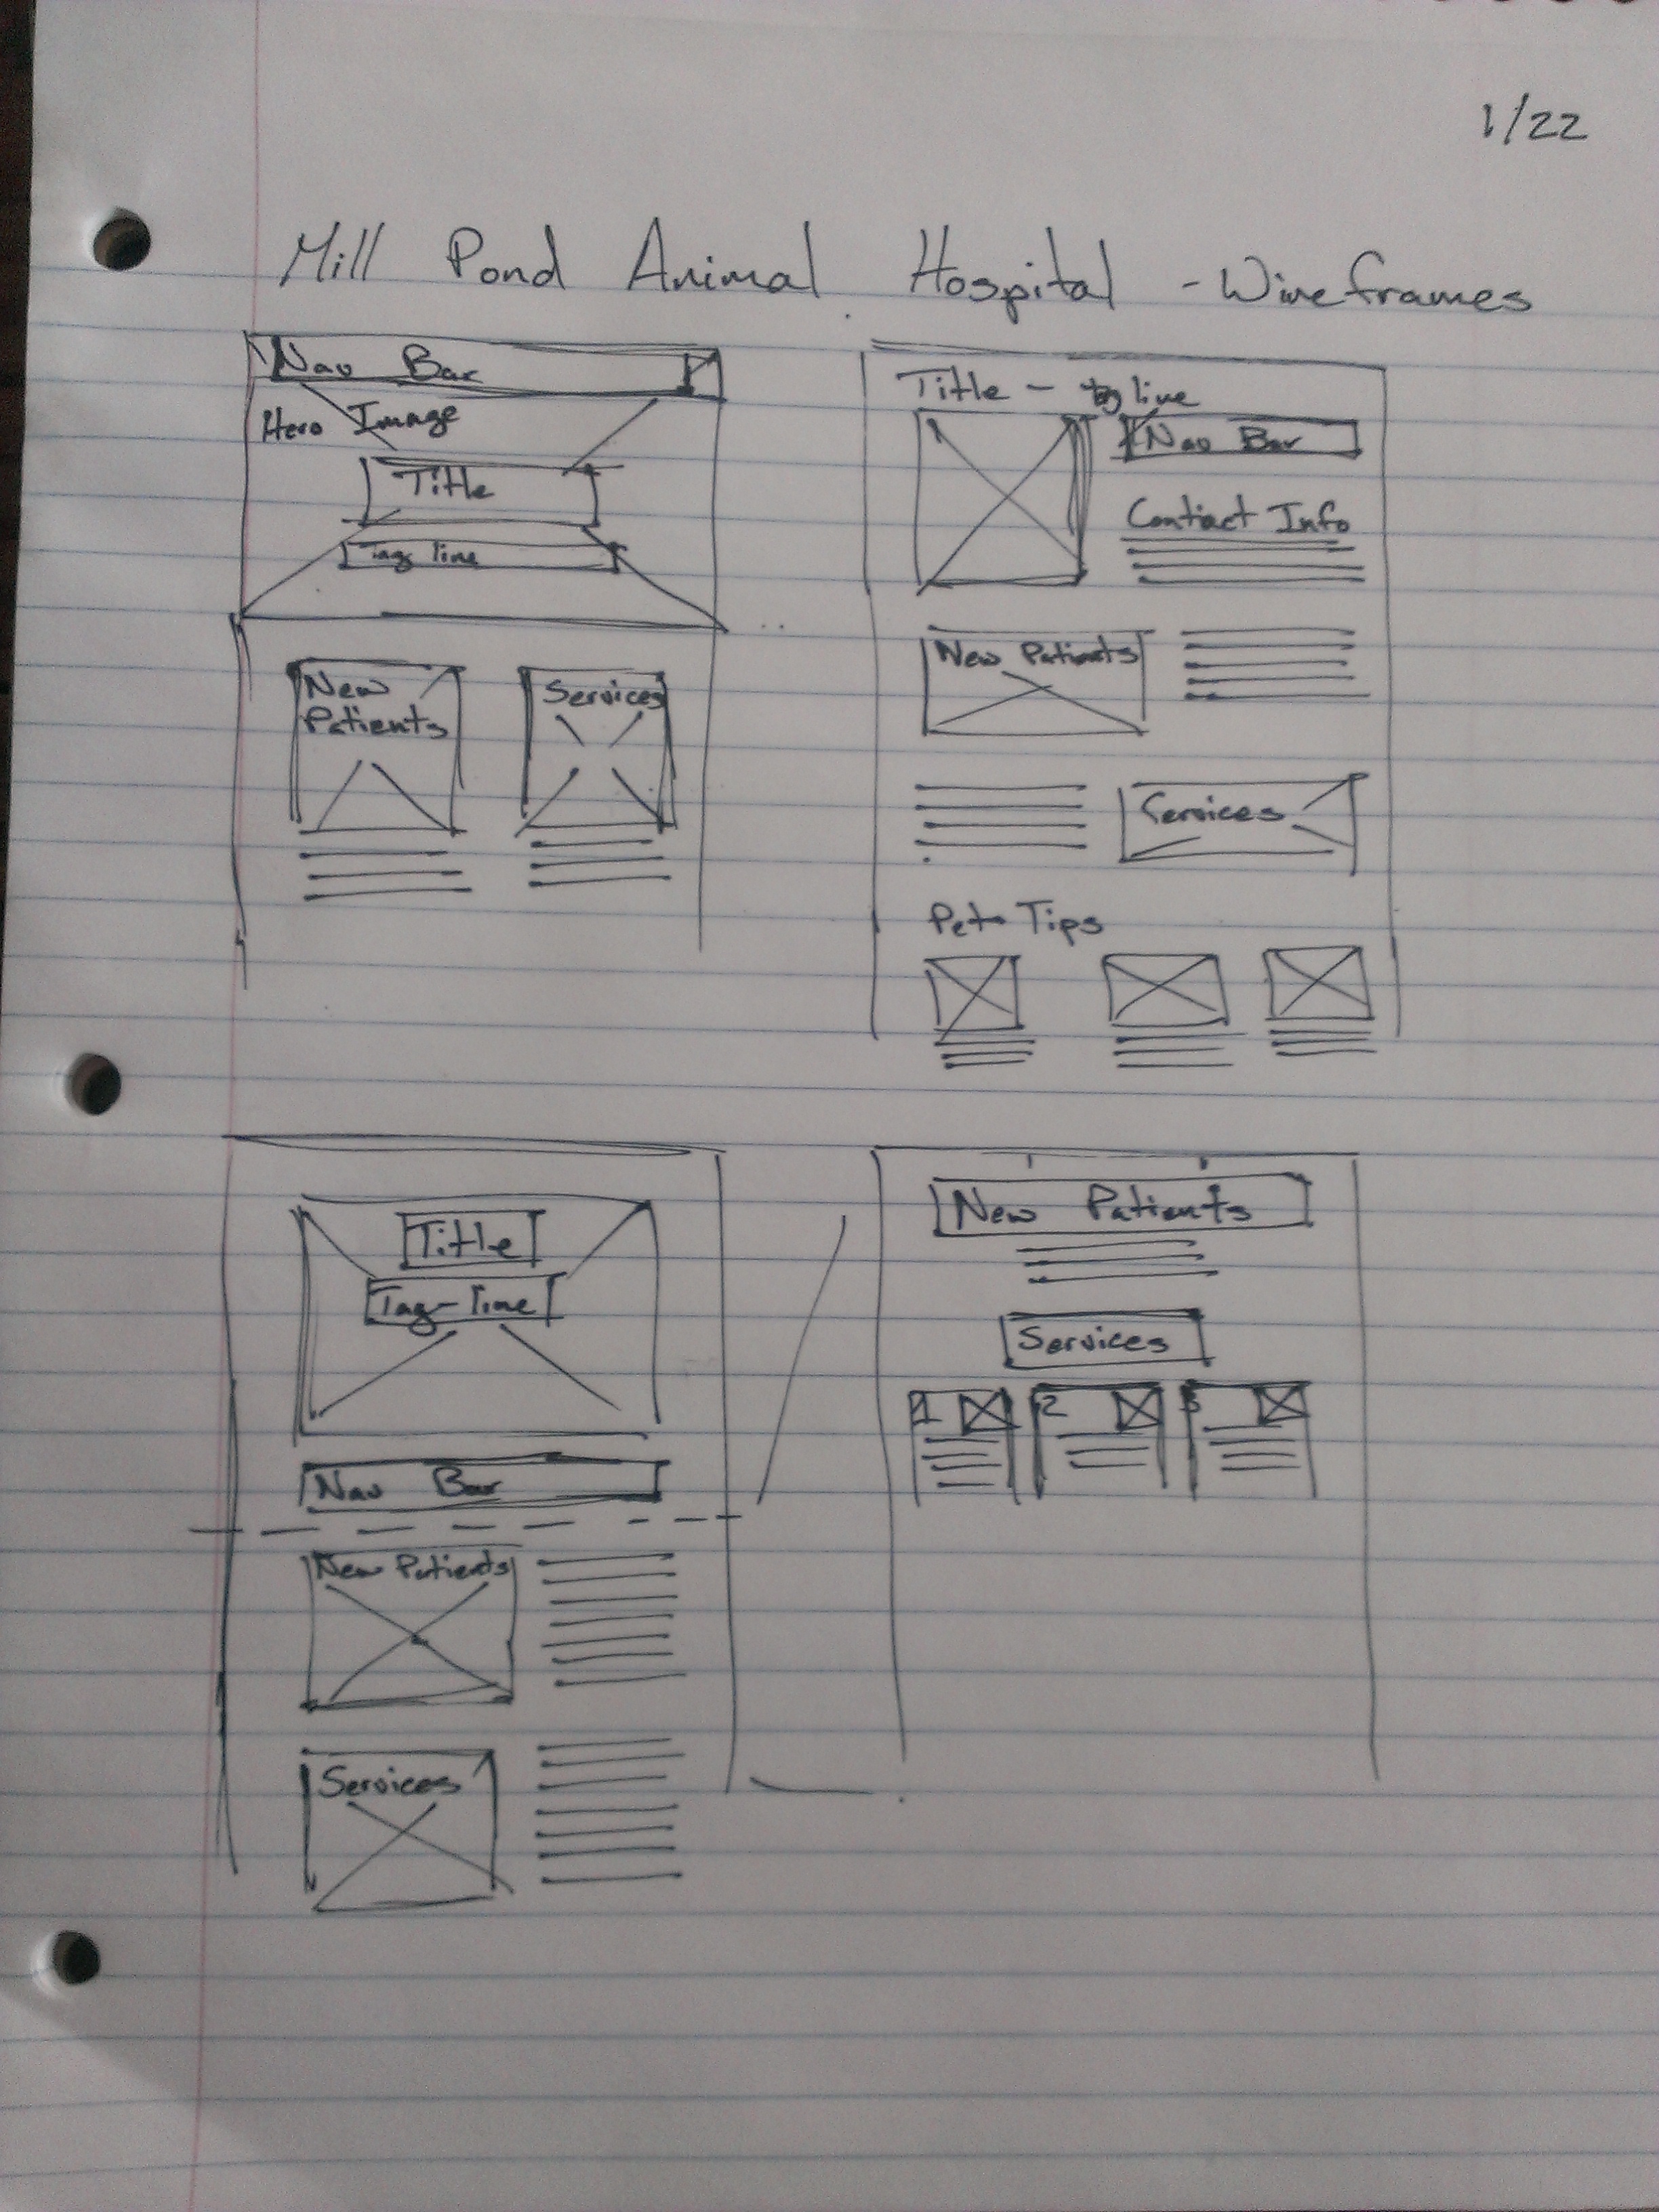 1/22
Mill Pond Animal Hospital - Wireframes
Nav Bar
Hero Image
Title
Tag line
New
Patients
Services
Title - tag line
Nav Bar
Contact Info
New Patients
Services
Pet Tips
Title
Tag-line
Nav Bar
New Patients
Services
New Patients
Services
1 2 3